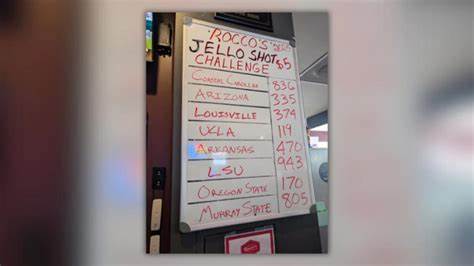 ROCCO'S 2025
JELLO SHOT $5
CHALLENGE
COASTAL CAROLINA 836
ARIZONA 335
LOUISVILLE 374
UCLA 119
ARKANSAS 470
LSU 943
OREGON STATE 170
MURRAY STATE 805